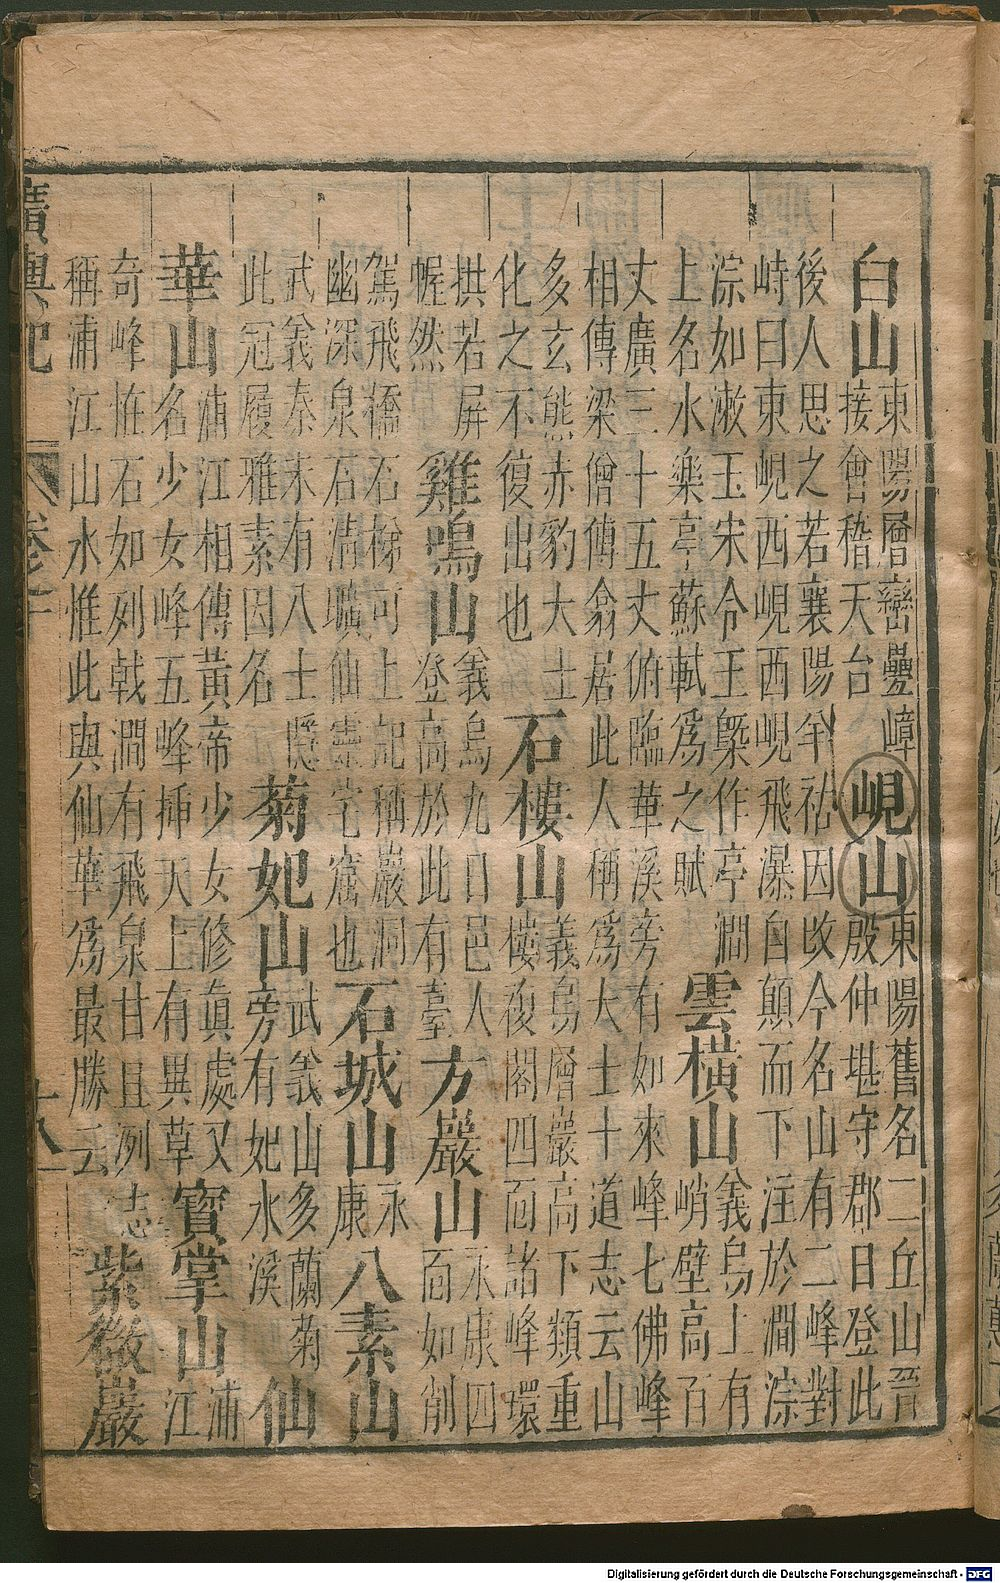 白山東陽層巒疊嶂
接會稽天台
峴山東陽舊名二丘山晉
殷仲堪守郡日登此
後人思之若襄陽羊祜因改今名山有二峰對
峙曰東峴西峴西峴飛瀑自顛而下注於澗淙
淙如漱玉宋令王槩作亭澗
上名水樂亭蘇軾爲之賦
雲橫山義烏上有
峭壁高百
丈廣三十五丈俯臨華溪旁有如來峰七佛峰
相傳梁僧傅翁居此人稱爲大士十道志云山
多玄熊赤豹大士
化之不復出也
石樓山義烏層巖高下類重
樓複閣四面諸峰環
拱若屏
幄然
雞鳴山義烏九日邑人
登高於此有臺
方巖山永康四
面如削
駕飛橋石梯可上記稱巖洞
幽深泉石清曠仙靈宅窟也
石城山永
康
八素山
武義泰末有八士隱
此冠履雅素因名
菊妃山武義山多蘭菊
旁有妃水溪
仙
華山浦江相傳黃帝少女修眞處又
名少女峰五峰揷天上有異草
寶掌山浦
江
奇峰恠石如列戟澗有飛泉甘且冽志
稱浦江山水惟此與仙華爲最勝云
紫微巖
廣輿記 卷 十八
Digitalisierung gefördert durch die Deutsche Forschungsgemeinschaft - DFG